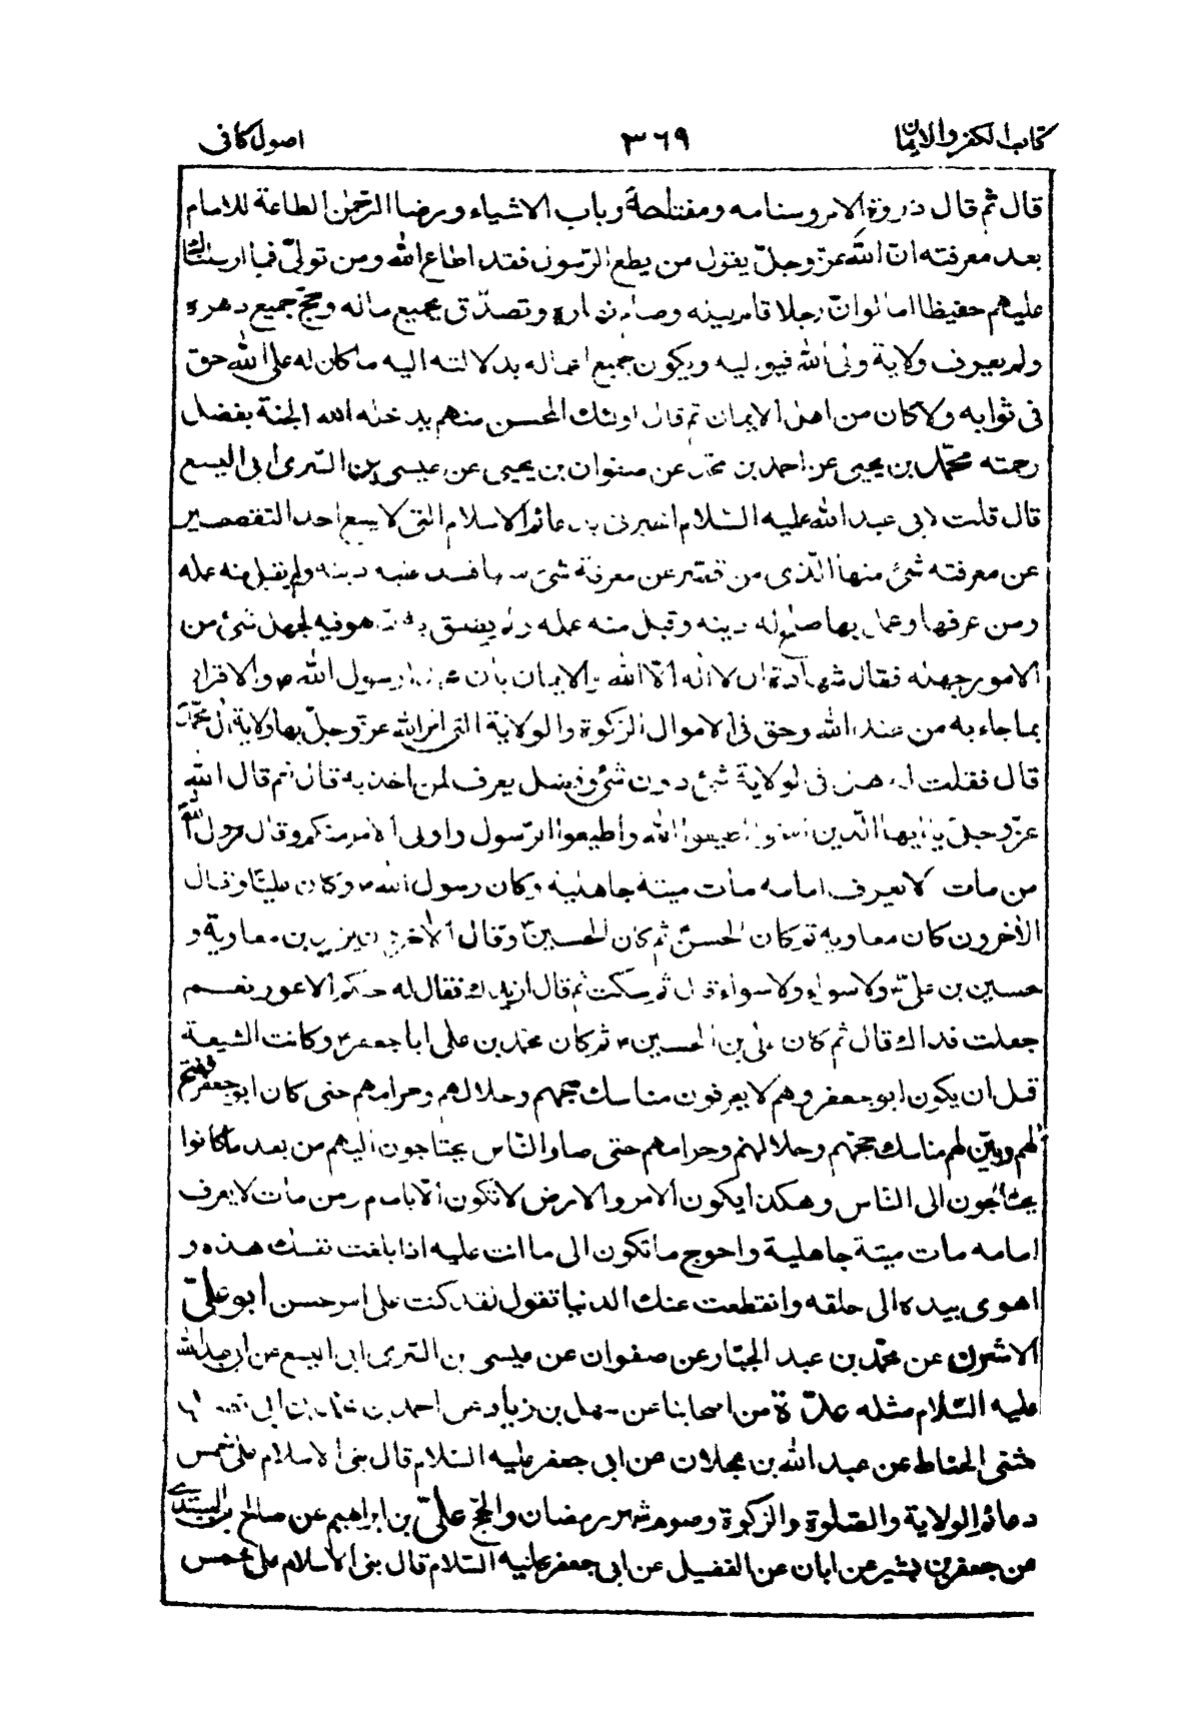 كتاب الكفر والايمان ٣٦٩ اصول كافى
قال ثم قال ذروة الامر وسنامه ومفتاحه وباب الاشياء ورضا الرحمٰن الطاعة للامام
بعد معرفته انّ الله عزّ وجلّ يقول من يطع الرّسول فقد اطاع الله ومن تولّىٰ فما ارسلناك
عليهم حفيظا اما لو انّ رجلا قام ليله وصام نهاره وتصدّق بجميع ماله وحجّ جميع دهره
ولم يعرف ولاية ولى الله فيواليه ويكون جميع اعماله بدلالته اليه ما كان له على الله حق
فى ثوابه ولا كان من اهل الايمان ثم قال اولئك المحسن منهم يدخله الله الجنة بفضل
رحمته محمّد بن يحيى عن احمد بن محمد عن صفوان بن يحيى عن عيسى بن السّرى ابى اليسع
قال قلت لابى عبد الله عليه السّلام اخبرنى بدعائم الاسلام التى لا يسع احد التقصير
عن معرفته شئ منها الّذى من قصّر عن معرفة شئ منها فسد عليه دينه ولم يقبل منه عمله
ومن عرفها وعمل بها صلح له دينه وقبل منه عمله ولم يضق به مما هو فيه لجهل شئ من
الامور جهله فقال شهادة ان لا اله الّا الله والايمان بان محمدا رسول الله ص والاقرار
بما جاء به من عند الله وحق فى الاموال الزكوة والولاية التى امر الله عزّ وجلّ بها ولاية ال محمّد
قال فقلت له هل فى الولاية شئ دون شئ فضل يعرف لمن اخذ به قال نعم قال الله
عزّ وجلّ يا ايها الّذين امنوا اطيعوا الله واطيعوا الرّسول واولى الامر منكم وقال رسول الله
من مات لا يعرف امامه مات ميتة جاهلية وكان رسول الله ص وكان عليّا وقال
الاخرون كان معاويه ثم كان الحسنّ ثم كان الحسينّ وقال الاخرون يزيد بن معاوية و
حسين بن علىّ ولا سواء ولا سواء قال ثم سكت ثم قال ازيدك فقال له حكم الاعور نعم
جعلت فداك قال ثم كان على بن الحسين ثم كان محمد بن على ابا جعفر وكانت الشيعة
قبل ان يكون ابو جعفر وهم لا يعرفون مناسك حجهم وحلالهم وحرامهم حتى كان ابو جعفر ففتح
لهم وبيّن لهم مناسك حجّهم وحلالهم وحرامهم حتى صار النّاس يحتاجون اليهم من بعد ما كانوا
يحتاجون الى النّاس وهكذا يكون الامر والارض لا تكون الّا بامام ومن مات لا يعرف
امامه مات ميتة جاهلية واحوج ما تكون الى ما انت عليه اذا بلغت نفسك هذه و
اهوى بيده الى حلقه وانقطعت عنك الدنيا تقول لقد كنت على امر حسن ابو علىّ
الاشعرى عن محمّد بن عبد الجبّار عن صفوان عن عيسى بن السّرى ابى اليسع عن ابى عبد الله
عليه السّلام مثله عدّة من اصحابنا عن سهل بن زياد عن احمد بن محمد بن ابى نصر عن
مثنى الحناط عن عبد الله بن عجلان عن ابى جعفر عليه السّلام قال بنى الاسلام على خمس
دعائم الولاية والصّلوة والزكوة وصوم شهر رمضان والحجّ علىّ بن ابراهيم عن صالح بن السندى
عن جعفر بن بشير عن ابان عن الفضيل عن ابى جعفر عليه السّلام قال بنى الاسلام على خمس